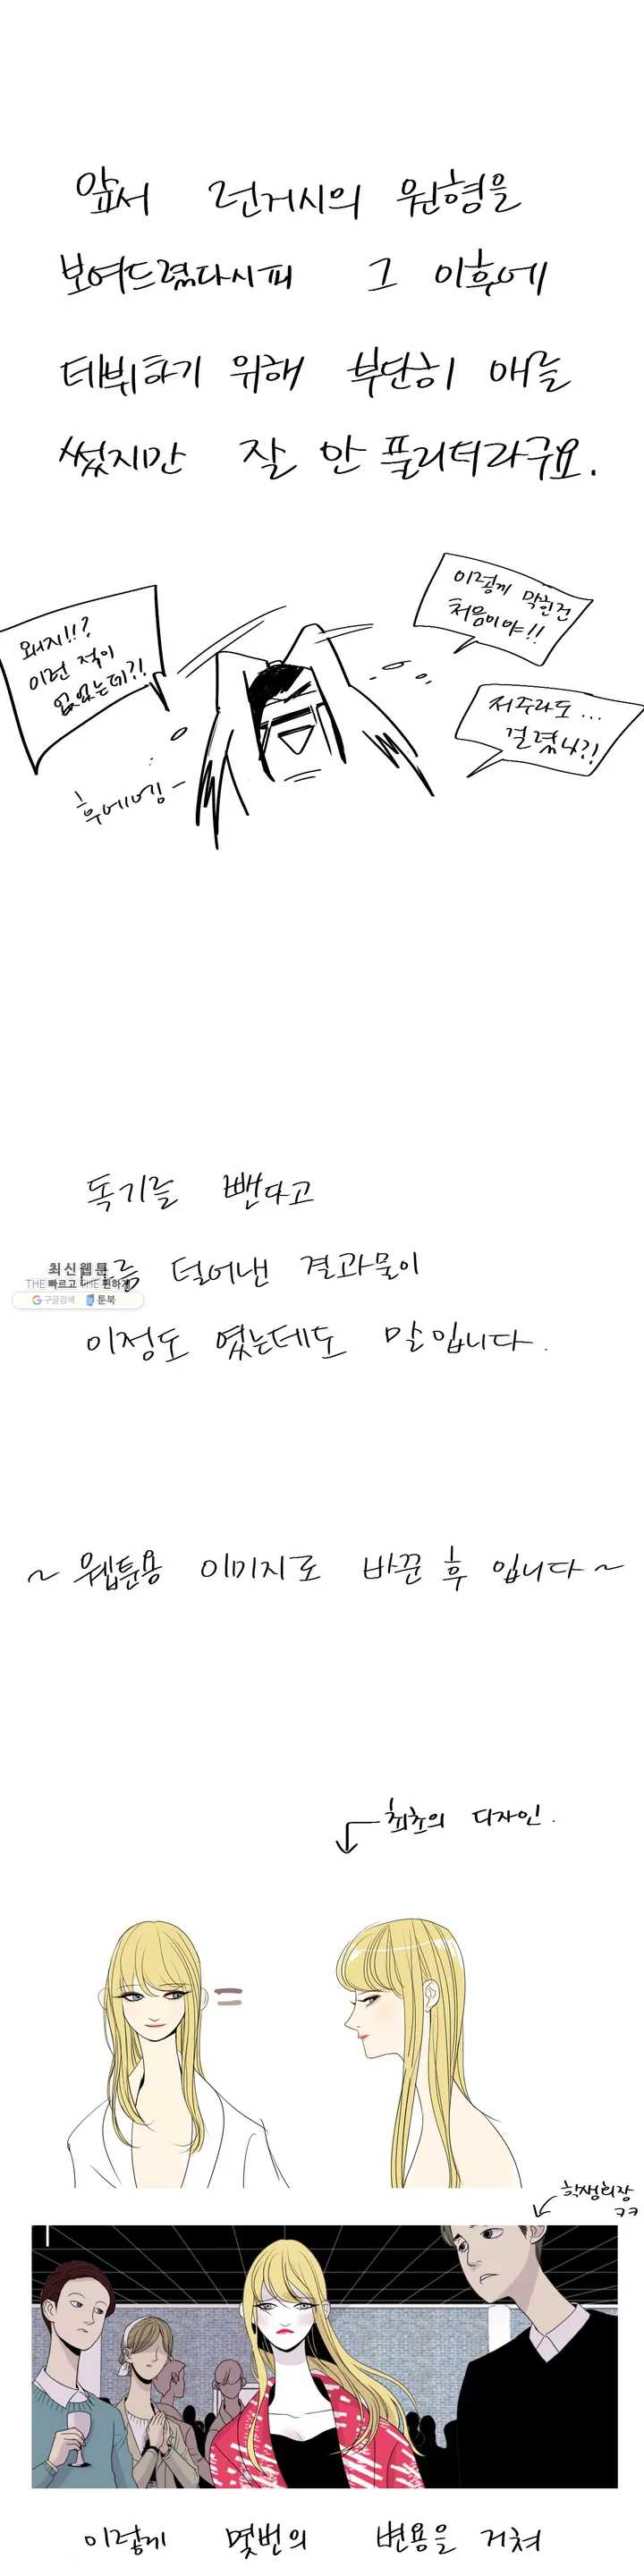 앞서 런거시의 원형을
보여드렸다시피 그 이후에
데뷔하기 위해 부단히 애를
썼지만 잘 안 풀리더라구요.
왜지!!?
이런 적이
없었는데?!
이렇게 막힌건
처음이야!!
저주라도...
걸렸나?!
후에에엥~
독기를 뺀다고
최신웹툰
THE 빠르고 THE 편하게
구글검색 툰북
털어낸 결과물이
이정도 였는데도 말입니다.
~ 웹툰용 이미지로 바꾼 후 입니다 ~
최초의 디자인.
학생회장
ㅋㅋ
이렇게 몇번의 변용을 거쳐